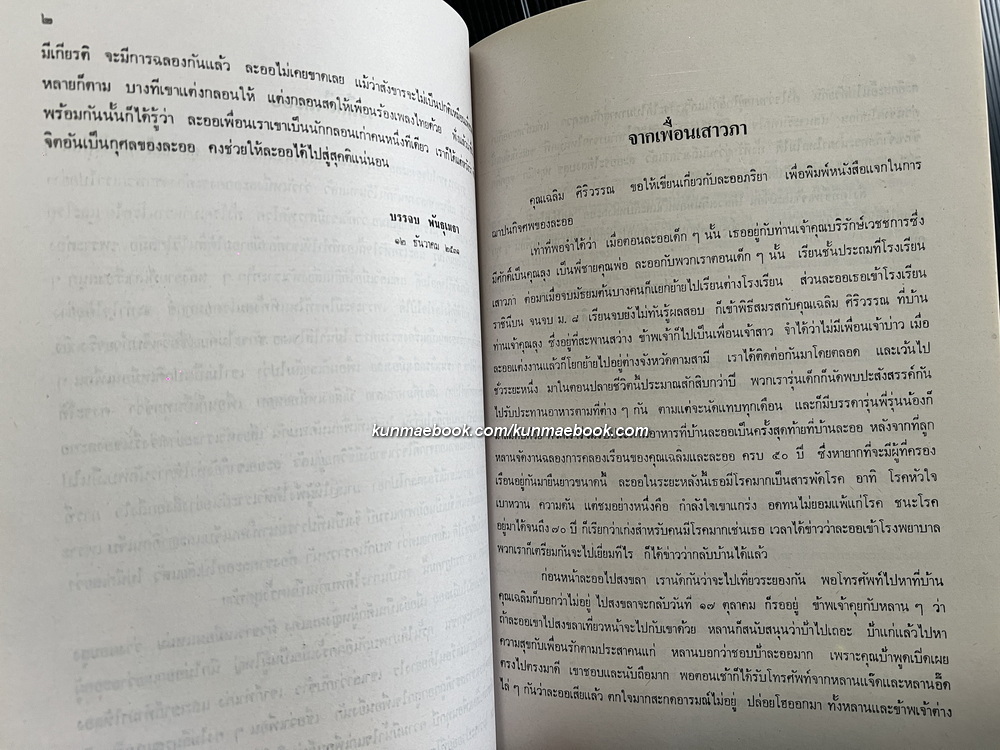 ๒
มีเกียรติ จะมีการฉลองกันแล้ว ละออไม่เคยขาดเลย แม้ว่าสังขารจะไม่เป็นปกติ
หลายก็ตาม บางทีเขาแต่งกลอนให้ แต่งกลอนสดให้เพื่อนร้องเพลงไทยด้วย
พร้อมกันนั้นก็ได้รู้ว่า ละออเพื่อนเราเขาเป็นนักกลอนเก่าคนหนึ่งทีเดียว
จิตอันเป็นกุศลของละออ คงช่วยให้ละออได้ไปสู่สุคติแน่นอน
บรรจบ พันธุเมธา
๑๒ ธันวาคม ๒๕๓๑
จากเพื่อนเสาวภา
คุณเฉลิม ศิริวรรณ ขอให้เขียนเกี่ยวกับละออภริยา เพื่อพิมพ์หนังสือแจกในการ
ฌาปนกิจศพของละออ
เท่าที่พอจำได้ว่า เมื่อตอนละออเด็ก ๆ นั้น เธออยู่กับท่านเจ้าคุณบริรักษ์เวชชการซึ่ง
มีศักดิ์เป็นคุณลุง เป็นพี่ชายคุณพ่อ ละออกับพวกเราตอนเด็ก ๆ นั้น เรียนชั้นประถมที่โรงเรียน
เสาวภา ต่อมาเมื่อจบมัธยมต้นบางคนก็แยกย้ายไปเรียนต่างโรงเรียน ส่วนละออเธอเข้าโรงเรียน
ราชินีบน จนจบ ม. ๘ เรียนจบยังไม่ทันรู้ผลสอบ ก็เข้าพิธีสมรสกับคุณเฉลิม ศิริวรรณ ที่บ้าน
ท่านเจ้าคุณลุง ซึ่งอยู่ที่สะพานสว่าง ข้าพเจ้าก็ไปเป็นเพื่อนเจ้าสาว จำได้ว่าไม่มีเพื่อนเจ้าบ่าว เมื่อ
ละออแต่งงานแล้วก็โยกย้ายไปอยู่ต่างจังหวัดตามสามี เราได้ติดต่อกันมาโดยตลอด และเว้นไป
ชั่วระยะหนึ่ง มาในตอนปลายชีวิตนี้ประมาณสักสิบกว่าปี พวกเรารุ่นเด็กก็นัดพบปะสังสรรค์กัน
ไปรับประทานอาหารตามที่ต่าง ๆ กัน ตามแต่จะนัดแทบทุกเดือน และก็มีบรรดารุ่นพี่รุ่นน้องก็
kunmaebook.com/kunmaebook.com
อาหารที่บ้านละออเป็นครั้งสุดท้ายที่บ้านละออ หลังจากที่ลูก
หลานจัดงานฉลองการคลองเรือนของคุณเฉลิมและละออ ครบ ๕๐ ปี ซึ่งหายากที่จะมีผู้ที่ครอง
เรือนอยู่กันมายืนยาวขนาดนี้ ละออในระยะหลังนี้เธอมีโรคมากเป็นสารพัดโรค อาทิ โรคหัวใจ
เบาหวาน ความดัน แต่ชมอย่างหนึ่งคือ กำลังใจเขาแกร่ง อดทนไม่ยอมแพ้แก่โรค ชนะโรค
อยู่มาได้จนถึง ๗๐ ปี ก็เรียกว่าเก่งสำหรับคนมีโรคมากเช่นเธอ เวลาได้ข่าวว่าละออเข้าโรงพยาบาล
พวกเราก็เตรียมกันจะไปเยี่ยมทีไร ก็ได้ข่าวว่ากลับบ้านได้แล้ว
ก่อนหน้าละออไปสงขลา เรานัดกันว่าจะไปเที่ยวระยองกัน พอโทรศัพท์ไปหาที่บ้าน
คุณเฉลิมก็บอกว่าไม่อยู่ ไปสงขลาจะกลับวันที่ ๑๗ ตุลาคม ก็รออยู่ ข้าพเจ้าคุยกับหลาน ๆ ว่า
ถ้าละออเขาไปสงขลาเที่ยวหน้าจะไปกับเขาด้วย หลานก็สนับสนุนว่าป้าไปเถอะ ป้าแก่แล้วไปหา
ความสุขกับเพื่อนรักตามประสาคนแก่ หลานบอกว่าชอบป้าละออมาก เพราะคุณป้าพูดเปิดเผย
ตรงไปตรงมาดี เขาชอบและนับถือมาก พอตอนเช้าก็ได้รับโทรศัพท์จากหลานแจ๊ดและหลานอี๊ด
ไล่ ๆ กันว่าละออเสียแล้ว ตกใจมากสะกดอารมณ์ไม่อยู่ ปล่อยโฮออกมา ทั้งหลานและข้าพเจ้าต่าง